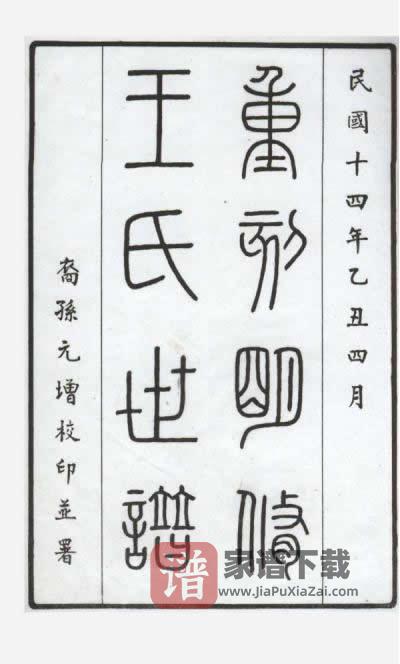 民國十四年乙丑四月
重刻明修
王氏世譜
裔孫元增校印並署
谱 家谱下载
www.JiaPuXiaZai.com